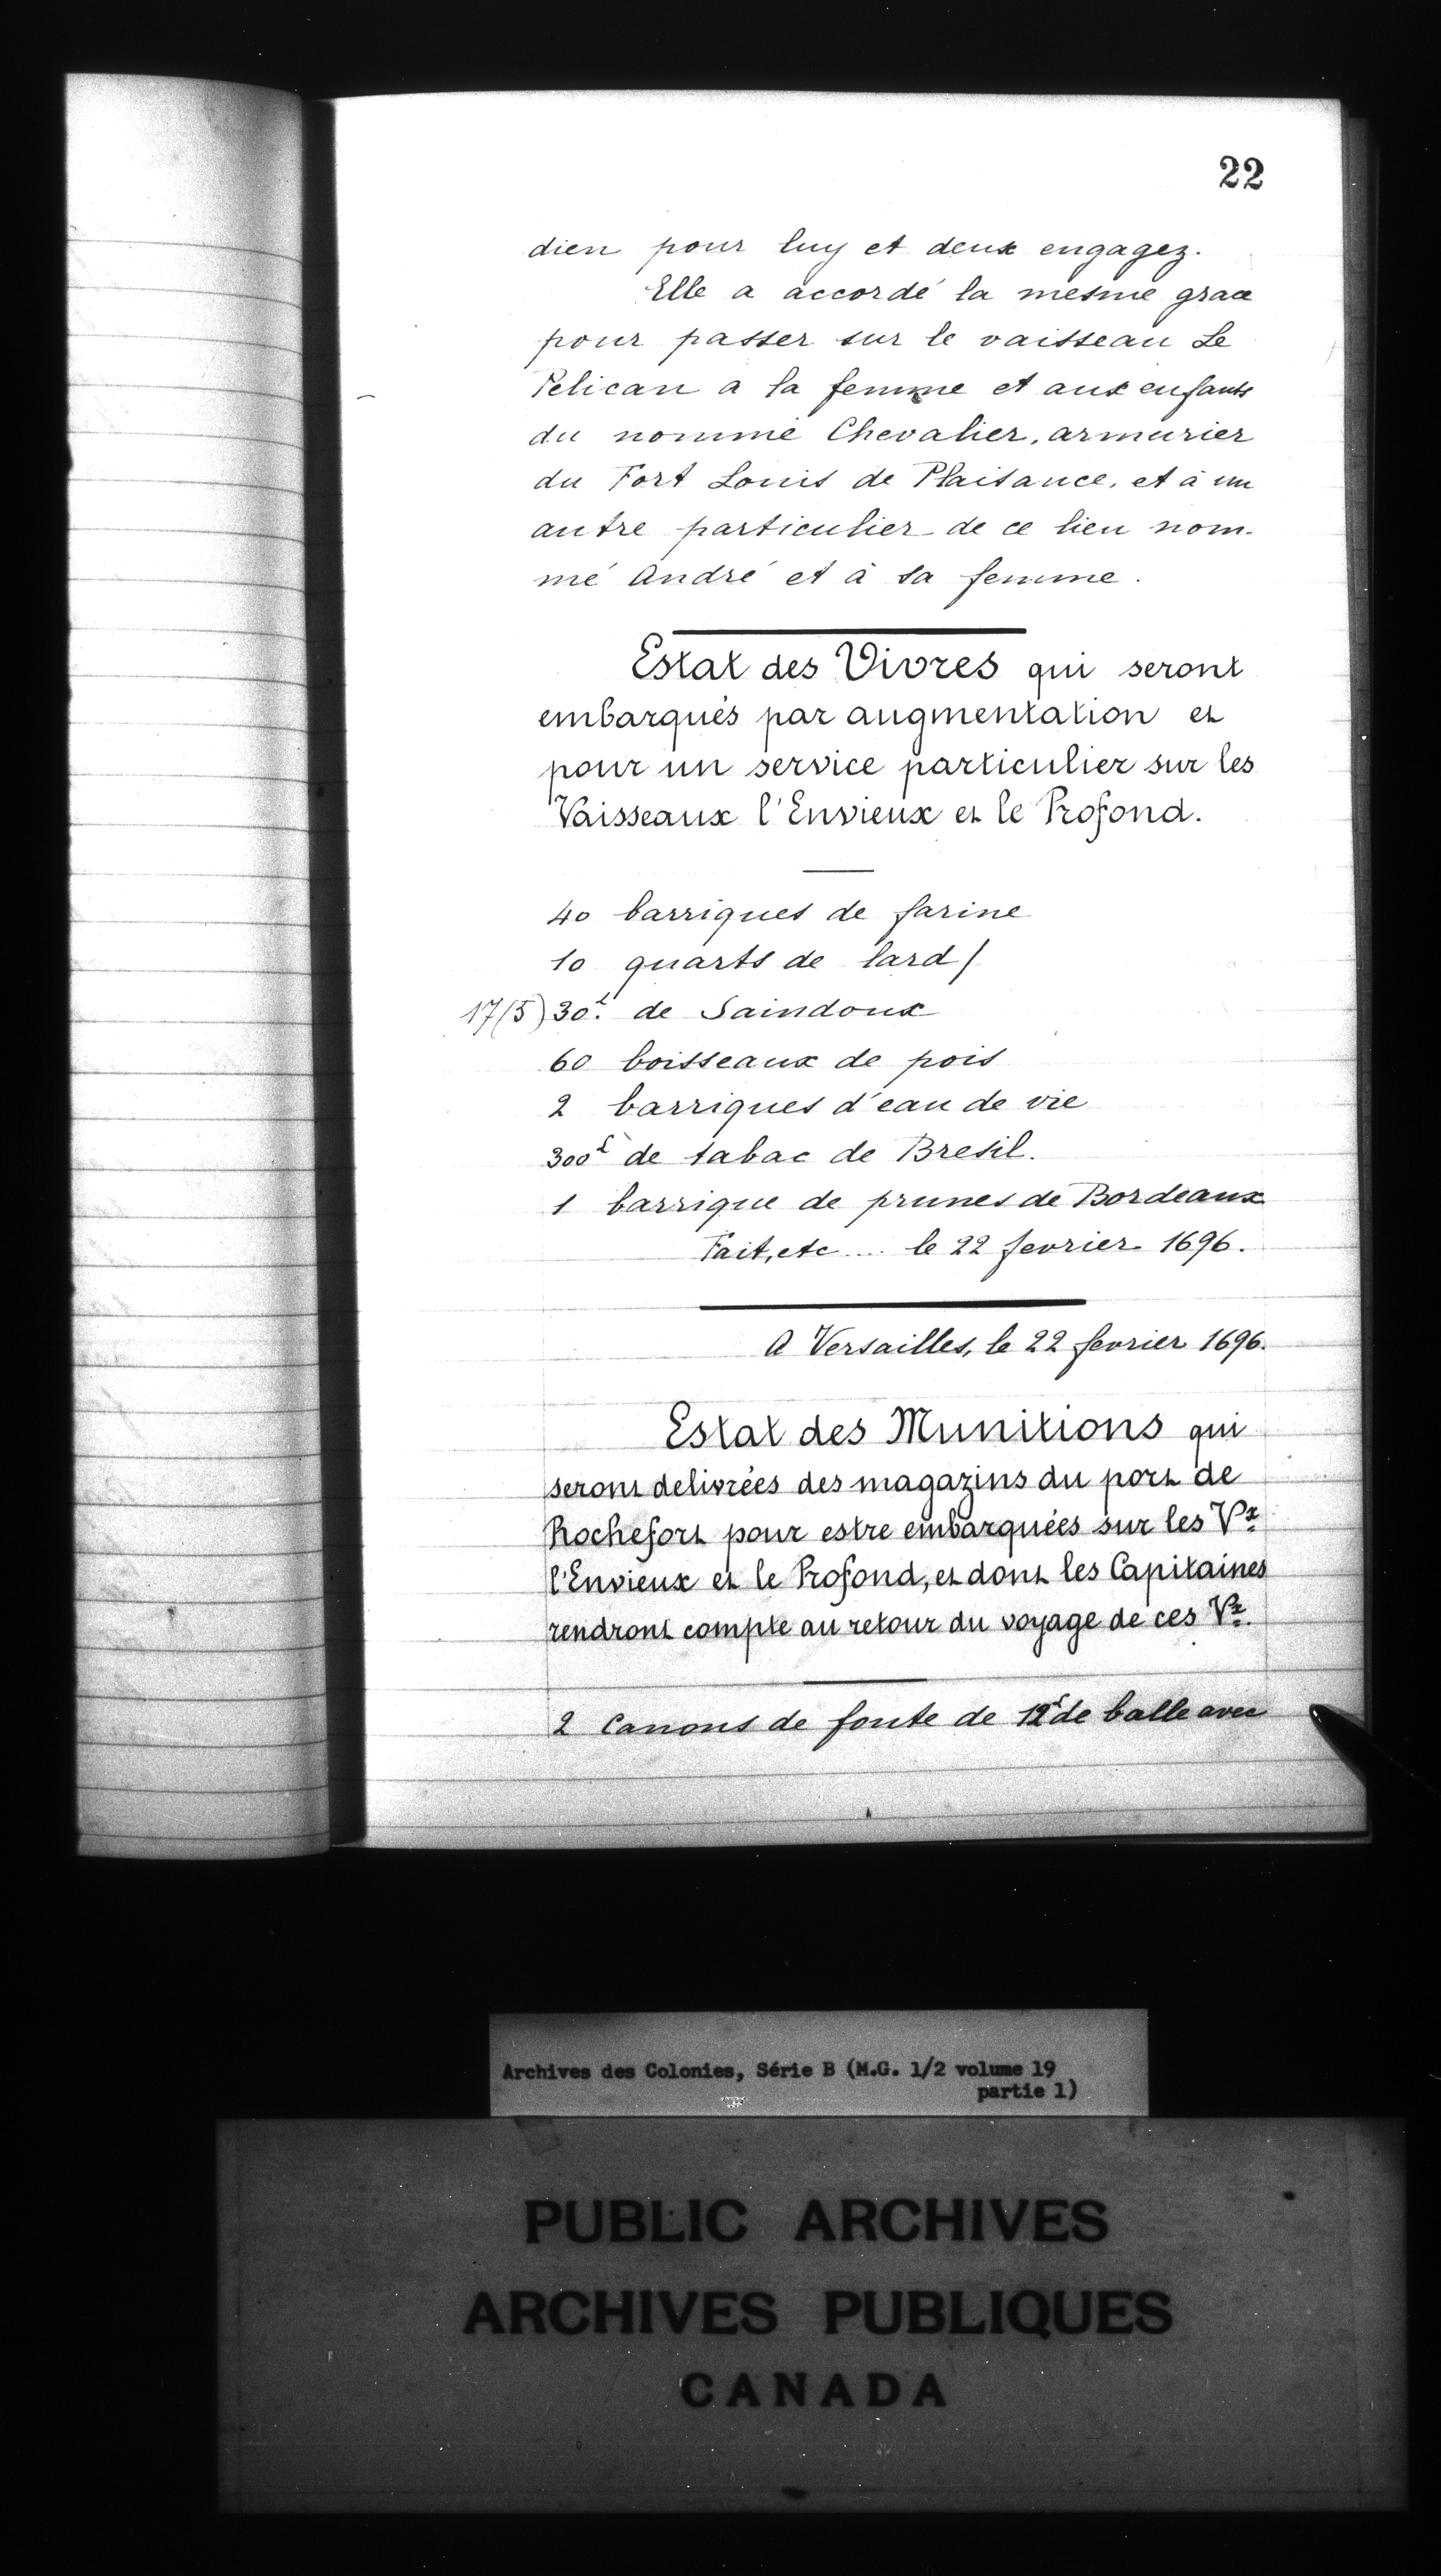 22
dien pour luy et deux engagez.
Elle a accordé la mesme grace
pour passer sur le vaisseau Le
Pelican a la femme et aux enfants
du nommé Chevalier, armurier
du Fort Louis de Plaisance, et à un
autre particulier de ce lieu nom-
mé André et à sa femme.
Estat des Vivres qui seront
embarqués par augmentation et
pour un service particulier sur les
Vaisseaux l'Envieux et le Profond.
40 barriques de farine
10 quarts de lard /
17(5) 30.ˡ de Saindoux
60 boisseaux de pois
2 barriques d'eau de vie
300ˡ de tabac de Bresil.
1 barrique de prunes de Bordeaux
Fait, etc .... le 22 fevrier 1696.
A Versailles, le 22 fevrier 1696.
Estat des Munitions qui
seront delivrées des magazins du port de
Rochefort pour estre embarquées sur les Vˣ
l'Envieux et le Profond, et dont les Capitaines
rendront compte au retour du voyage de ces Vˣ.
2 Canons de fonte de 12ˡ de balle avec
Archives des Colonies, Série B (M.G. 1/2 volume 19
partie 1)
PUBLIC ARCHIVES
ARCHIVES PUBLIQUES
CANADA